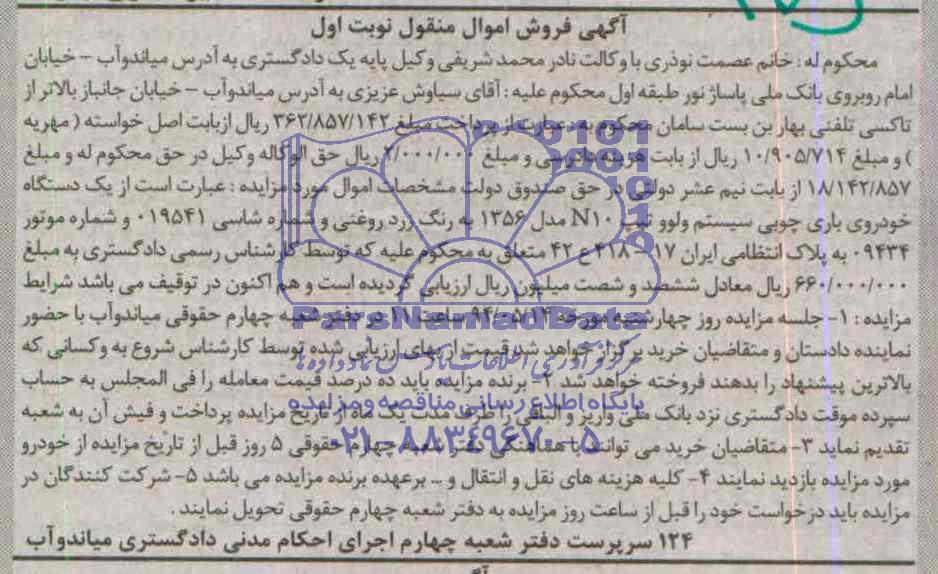 آگهی فروش اموال منقول نوبت اول
محکوم له : خانم عصمت نوذری با وکالت نادر محمد شریفی وکیل پایه یک دادگستری به آدرس میاندوآب - خیابان
امام روبروی بانک ملی پاساژ نور طبقه اول محکوم علیه : آقای سیاوش عزیزی به آدرس میاندوآب - خیابان جانباز بالاتر از
تاکسی تلفنی بهار بن بست سامان محکوم به عبارت از پرداخت مبلغ ۳۶۲/۸۵۷/۱۴۲ ریال از بابت اصل خواسته ( مهریه
) و مبلغ ۱۰/۹۰۵/۷۱۴ ریال از بابت هزینه دادرسی و مبلغ ۲/۰۰۰/۰۰۰ ریال حق الوکاله وکیل در حق محکوم له و مبلغ
۱۸/۱۴۲/۸۵۷ از بابت نیم عشر دولتی در حق صندوق دولت مشخصات اموال مورد مزایده : عبارت است از یک دستگاه
خودروی باری چوبی سیستم ولوو تیپ N۱۰ مدل ۱۳۵۶ به رنگ زرد روغنی و شماره شاسی ۰۱۹۵۴۱ و شماره موتور
۰۹۴۳۴ به پلاک انتظامی ایران ۱۷ - ۴۱۸ ع ۴۲ متعلق به محکوم علیه که توسط کارشناس رسمی دادگستری به مبلغ
۶۶۰/۰۰۰/۰۰۰ ریال معادل ششصد و شصت میلیون ریال ارزیابی گردیده است و هم اکنون در توقیف می باشد شرایط
مزایده : ۱- جلسه مزایده روز چهارشنبه مورخه ۹۴/۰۵/۱۴ ساعت ۱۱ در دفتر شعبه چهارم حقوقی میاندوآب با حضور
نماینده دادستان و متقاضیان خرید برگزار خواهد شد قیمت از بهای ارزیابی شده توسط کارشناس شروع به وکسانی که
بالاترین پیشنهاد را بدهند فروخته خواهد شد ۲- برنده مزایده باید ده درصد قیمت معامله را فی المجلس به حساب
سپرده موقت دادگستری نزد بانک ملی واریز و البقی را ظرف مدت یک ماه از تاریخ مزایده پرداخت و فیش آن به شعبه
تقدیم نماید ۳- متقاضیان خرید می توانند با هماهنگی دفتر شعبه چهارم حقوقی ۵ روز قبل از تاریخ مزایده از خودرو
مورد مزایده بازدید نمایند ۴- کلیه هزینه های نقل و انتقال و ... برعهده برنده مزایده می باشد ۵- شرکت کنندگان در
مزایده باید درخواست خود را قبل از ساعت روز مزایده به دفتر شعبه چهارم حقوقی تحویل نمایند .
۱۲۴ سرپرست دفتر شعبه چهارم اجرای احکام مدنی دادگستری میاندوآب
ParsNamadData
پایگاه اطلاع رسانی مناقصه و مزایده
۰۲۱-۸۸۳۴۹۶۷۰-۵